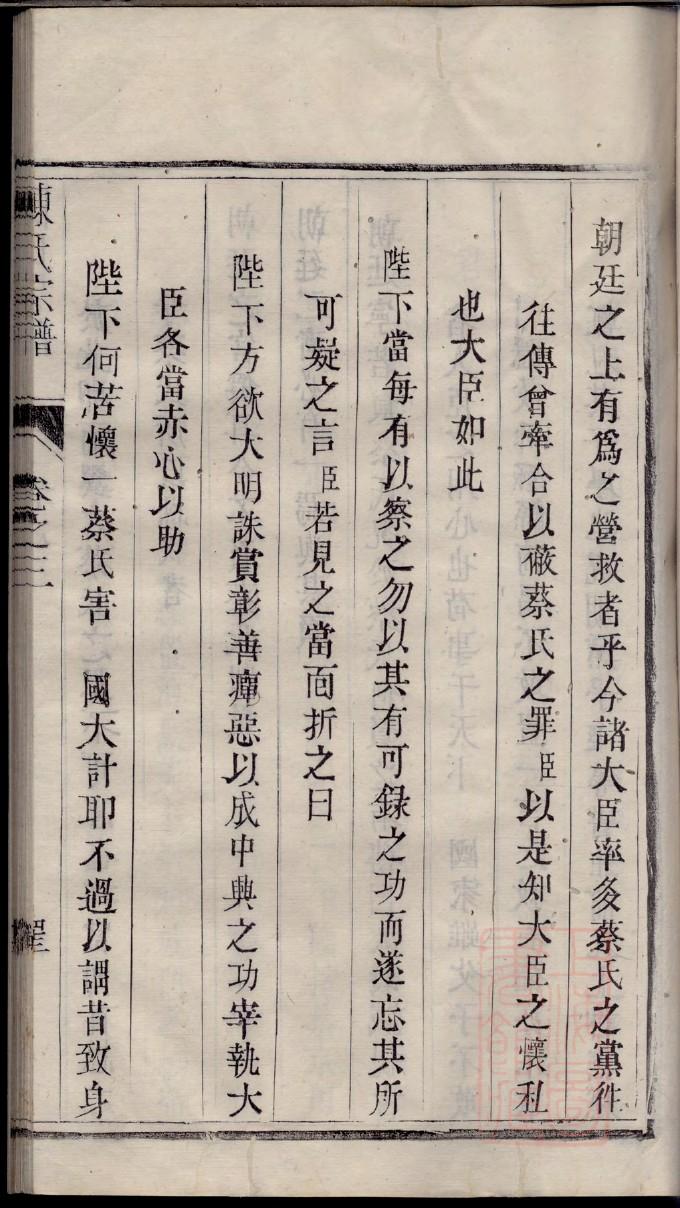 朝廷之上有爲之營救者乎今諸大臣率多蔡氏之黨徃
徃傳會牽合以蔽蔡氏之罪臣以是知大臣之懷私
也大臣如此
陛下當每有以察之勿以其有可録之功而遂忘其所
可疑之言臣若見之當面折之曰
陛下方欲大明誅賞彰善癉惡以成中興之功宰執大
臣各當赤心以助
陛下何苦懷一蔡氏害 國大計耶不過以謂昔致身
陳氏宗譜 卷之三